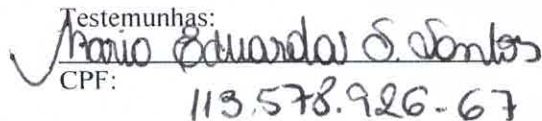 Testemunhas:
Maria Eduarda S. Santos
CPF:
113.578.926-67